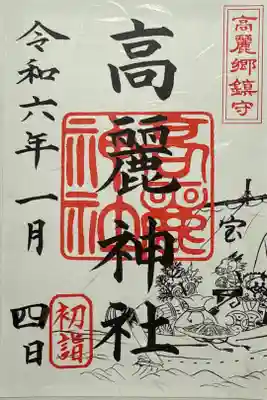 高麗郷鎮守
高麗神社
高麗
神社
宝
令和六年一月
四日
初詣